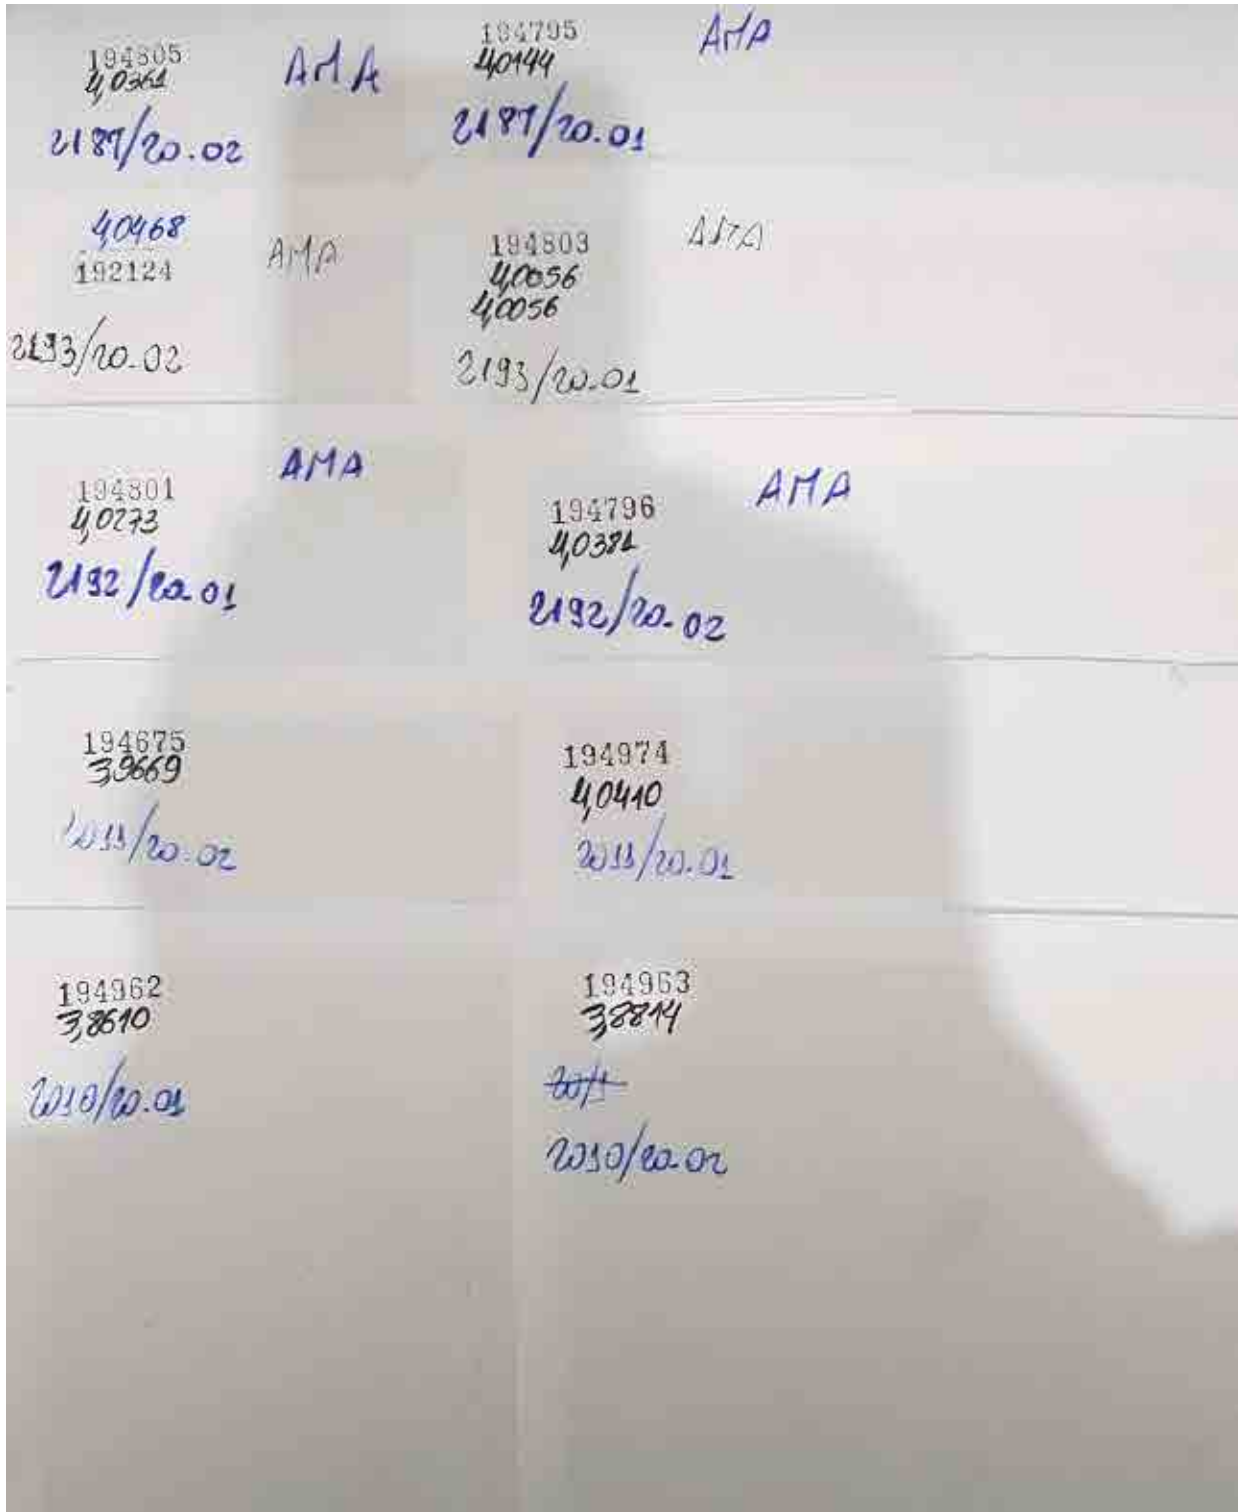 194805 AMA
4,0361
2187/20.02
194795 AMA
4,0144
2187/20.01
4,0468
192124 AMA
2193/20-02
194803 AMA
4,0056
4,0056
2193/20-01
194801 AMA
4,0273
2192/20.01
194796 AMA
4,0381
2192/20-02
194675
3,9669
2011/20.02
194974
4,0410
2011/20.01
194962
3,8610
2010/20.01
194963
3,8814
2010/20-02